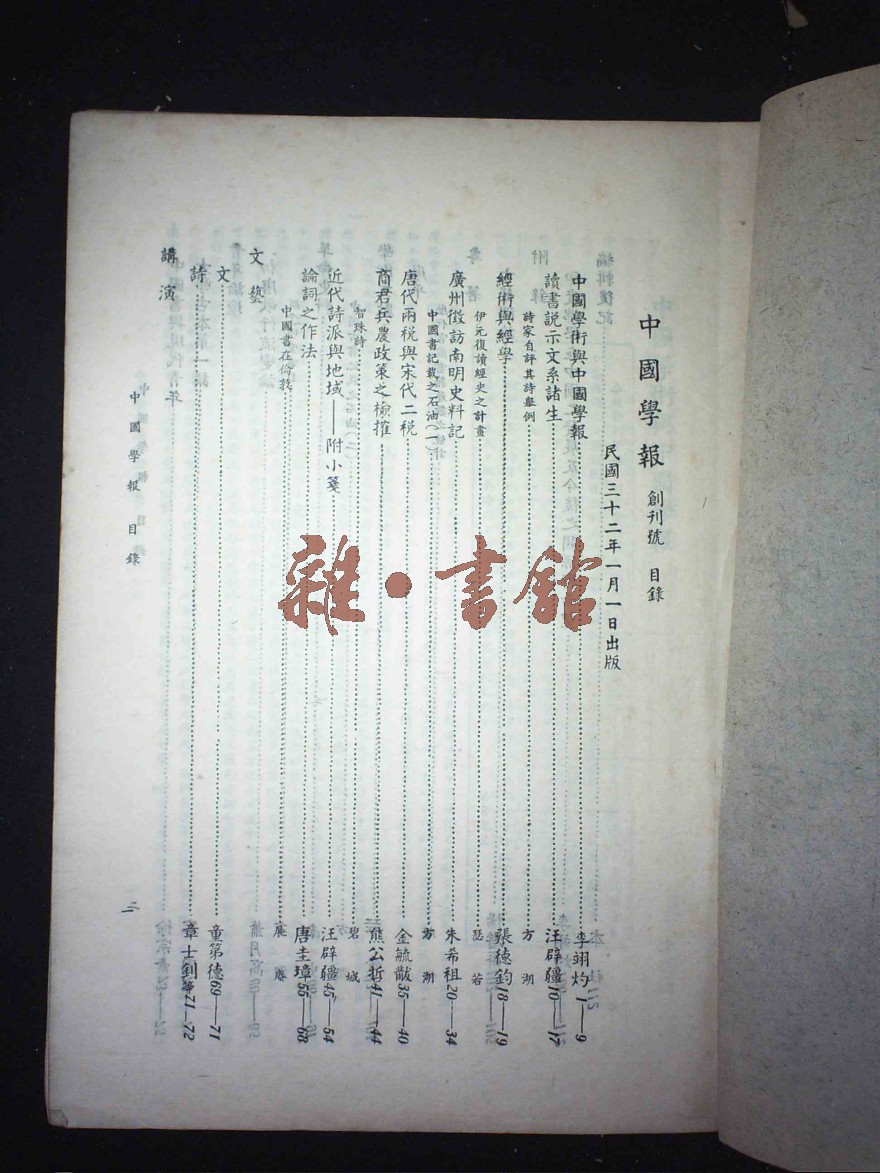 中國學報 創刊號 目錄
民國三十二年一月一日出版
中國學術與中國學報 李翊灼 1——9
讀書説示文系諸生 汪辟疆 10——17
詩家自評其詩舉例 方湖
經術與經學 張德鈞 18——19
伊元復讀經史之計畫 瑟若
廣州徵訪南明史料記 朱希祖 20——34
中國書記載之石油(一) 方湖
唐代兩税與宋代二税 金毓黻 35——40
商君兵農政策之檢搉 熊公哲 41——44
智珠詩 碧城
近代詩派與地域——附小箋 汪辟疆 45——54
論詞之作法 唐圭璋 55——68
中國書在倫敦
文藝
文 童第德 69——71
詩 章士釗等 71——72
講演
中國學報 目錄
雜·書舘